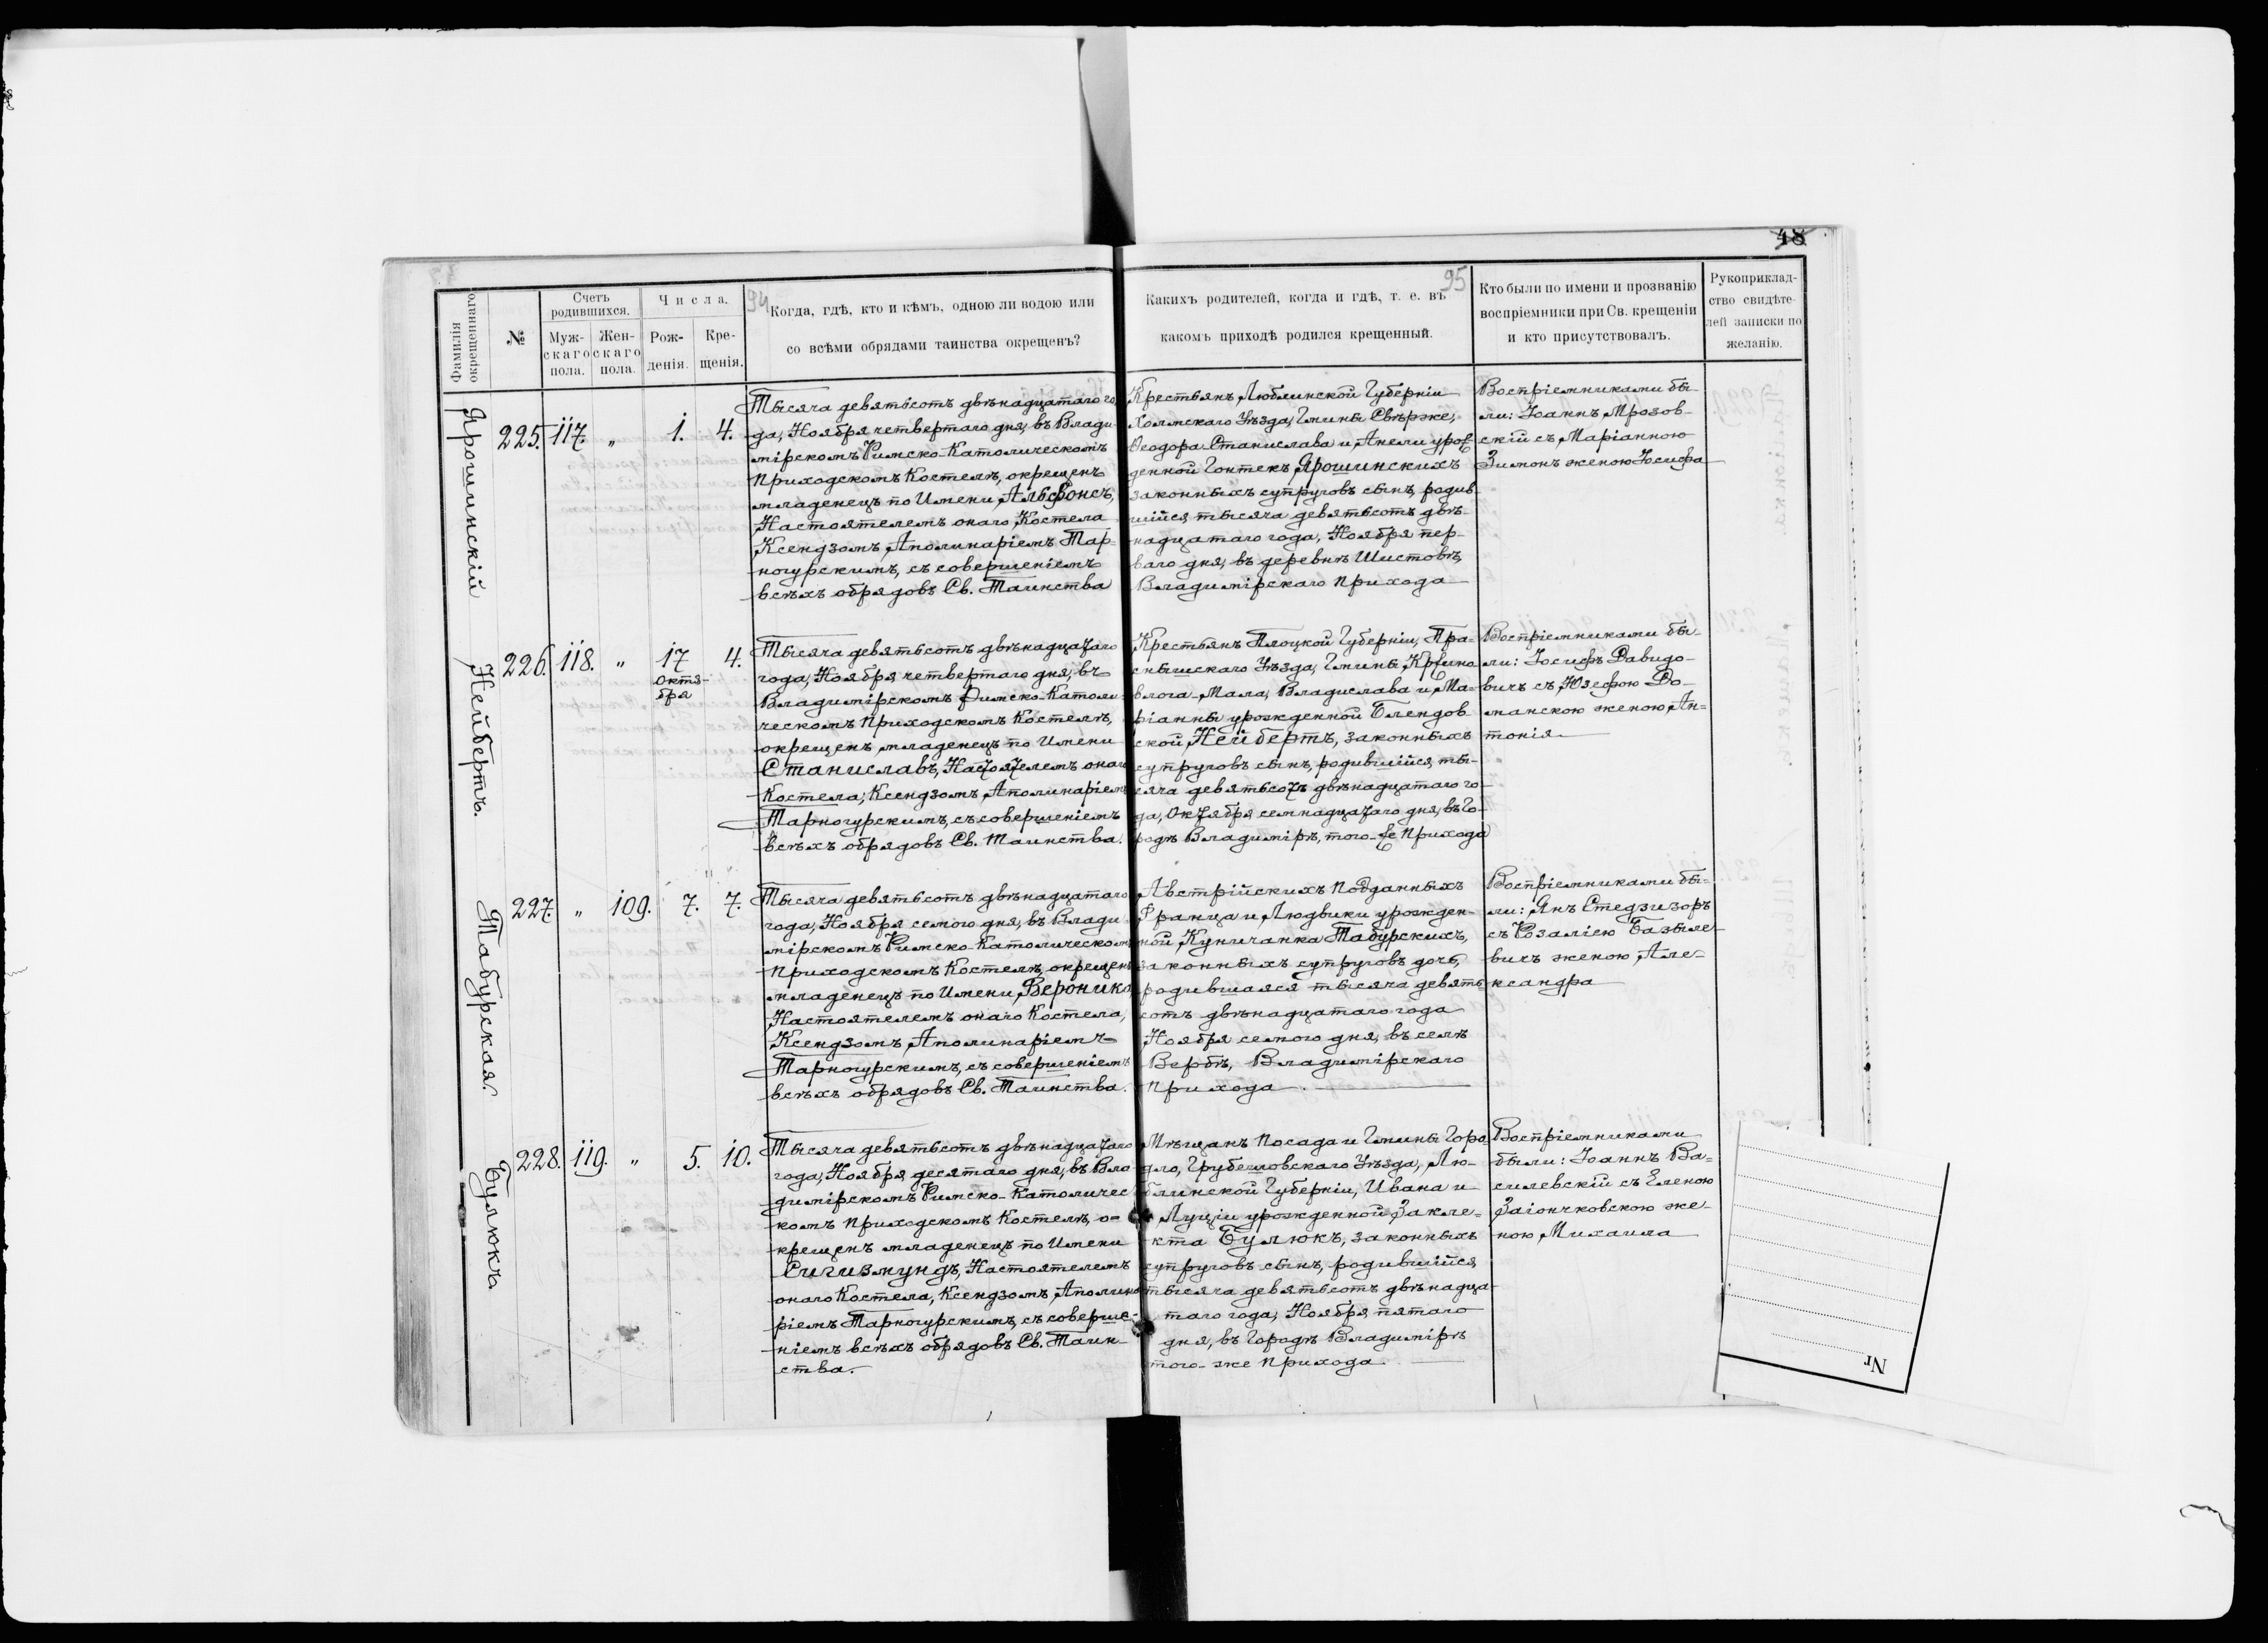 48
94
95
Фамилія окрещеннаго.
№
Счетъ родившихся.
Муж-скаго пола.
Жен-скаго пола.
Числа.
Рож-денія.
Кре-щенія.
Когда, гдѣ, кто и кѣмъ, одною ли водою или
со всѣми обрядами таинства окрещенъ?
Какихъ родителей, когда и гдѣ, т. е. въ
какомъ приходѣ родился крещенный.
Кто были по имени и прозванію
воспріемники при Св. крещеніи
и кто присутствовалъ.
Рукоприклад-
ство свидѣте-
лей записки по
желанію.
Ярошинскій
225. 117. „ 1. 4.
Тысяча девятьсотъ двѣнадцатаго го
да, Ноября четвертаго дня, въ Влади-
мірскомъ Римско-Католическомъ
Приходскомъ Костелѣ, окрещенъ
младенецъ по Имени Альфонсъ,
Настоятелемъ онаго Костела
Ксендзомъ Аполинаріемъ Тар=
ногурскимъ, съ совершеніемъ
всѣхъ обрядовъ Св. Таинства
Крестьянъ Люблинской Губерніи
Холмскаго Уѣзда, Гмины Свѣрже,
Ѳеодора-Станислава и Анели урож
денной Гонтекъ Ярошинскихъ
законныхъ супруговъ сынъ, родив-
шійся тысяча девятьсотъ двѣ-
надцатаго года, Ноября пер-
ваго дня, въ деревнѣ Шистовѣ,
Владимірскаго Прихода
Воспріемниками бы-
ли: Іоаннъ Мрозов-
скій съ Маріанною
Зимонъ женою Іосифа
Нейбертъ.
226. 118. „ 17 Октя-бря 4.
Тысяча девятьсотъ двѣнадцатаго
года, Ноября четвертаго дня, въ
Владимірскомъ Римско-Католи-
ческомъ Приходскомъ Костелѣ,
окрещенъ младенецъ по Имени
Станиславъ, Настоятелемъ онаго
Костела, Ксендзомъ Аполинаріемъ
Тарногурскимъ, съ совершеніемъ
всѣхъ обрядовъ Св. Таинства.
Крестьянъ Плоцкой Губерніи, Пра=
снышскаго Уѣзда, Гмины Кржино
влога-Мала, Владислава и Ма=
ріанны урожденной Блендов-
ской Нейбертъ, законныхъ
супруговъ сынъ, родившійся ты-
сяча девятьсотъ двѣнадцатаго го-
да, Октября семнадцатаго дня, въ Го-
родѣ Владимірѣ, того-же Прихода
Воспріемниками бы-
ли: Іосифъ Давидо-
вичъ съ Юзефою До-
манскою женою Ан=
тонія
Табурская.
227. „ 109. 7. 7.
Тысяча девятьсотъ двѣнадцатаго
года, Ноября семого дня, въ Влади
мірскомъ Римско-Католическомъ
Приходскомъ Костелѣ, окрещенъ
младенецъ по Имени Вероника
Настоятелемъ онаго Костела,
Ксендзомъ Аполинаріемъ
Тарногурскимъ, съ совершеніемъ
всѣхъ обрядовъ Св. Таинства.
Австрійскихъ Подданныхъ
Франца и Людвики урожден-
ной Куничанка Табурскихъ,
законныхъ супруговъ дочь,
родившаяся тысяча девять-
сотъ двѣнадцатаго года
Ноября семого дня, въ селѣ
Вербѣ, Владимірскаго
Прихода.
Воспріемниками бы=
ли: Янъ Стедзизоръ
съ Розаліею Базыле-
вичъ женою Але-
ксандра
Булюкъ
228. 119. „ 5. 10.
Тысяча девятьсотъ двѣнадцатаго
года, Ноября десятаго дня, въ Вла-
димірскомъ Римско-Католичес
комъ Приходскомъ Костелѣ, о=
крещенъ младенецъ по Имени
Сигизмундъ, Настоятелемъ
онаго Костела, Ксендзомъ Аполина
ріемъ Тарногурскимъ, съ соверше-
ніемъ всѣхъ обрядовъ Св. Таин-
ства.
Мѣщанъ Посада и Гмины Горо-
дло, Грубешовскаго Уѣзда, Лю-
блинской Губерніи, Ивана и
Луціи урожденной Закле=
кта Булюкъ, законныхъ
супруговъ сынъ, родившійся
тысяча девятьсотъ двѣнадца-
таго года, Ноября пятаго
дня, въ Городѣ Владимірѣ
того-же Прихода
Воспріемниками
были: Іоаннъ Ва=
силевскій съ Еленою
Заіончковскою же-
ною Михаила
Nr